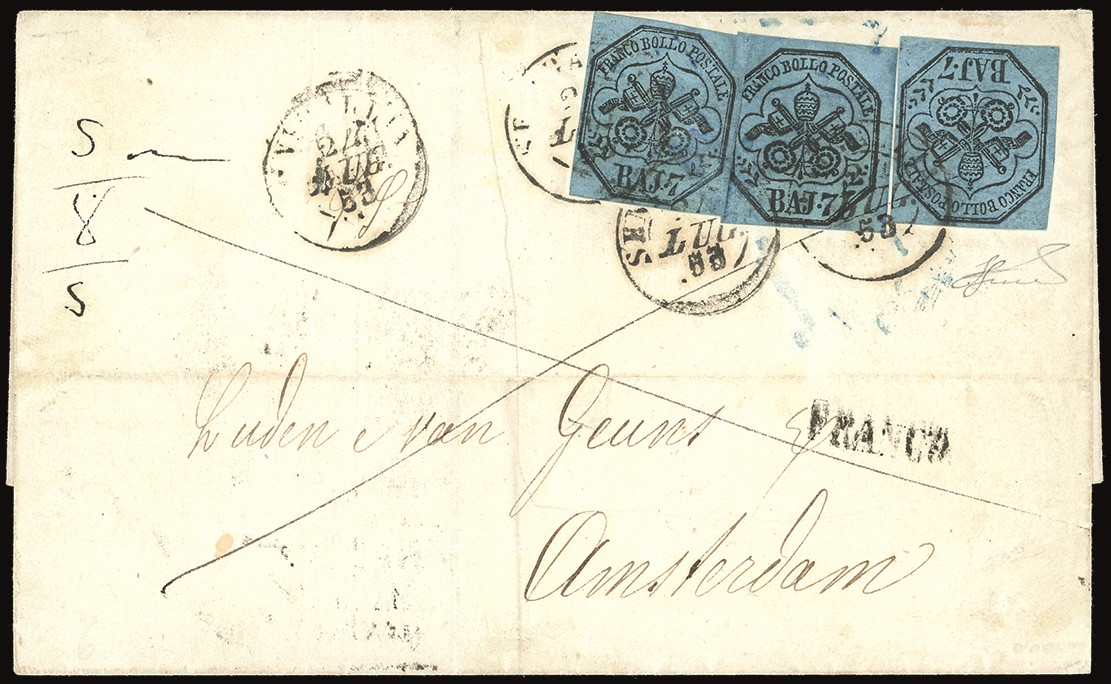 FRANCO BOLLO POSTALE
BAJ·7
FRANCO BOLLO POSTALE
BAJ·7
BAJ·7
FRANCO BOLLO POSTALE
24
LUG.
53
LUG.
53
53
S
8
S
FRANCO
Luden & van Geuns
Amsterdam